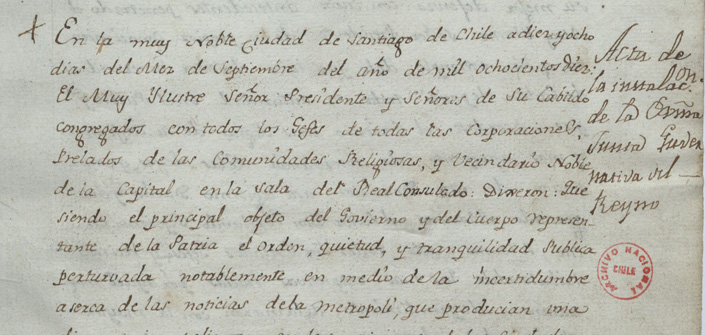 En la muy Noble Ciudad de Santiago de Chile a diez y ocho
dias del Mez de Septiembre del año de mil ochocientos diez:
El Muy Ylustre Señor Presidente y Señores de Su Cabildo
congregados con todos los Gefes de todas las Corporaciones,
Prelados de las Comunidades Religiosas, y Vecindario Noble
de la Capital en la sala del Real Consulado: Dixeron: Que
siendo el principal objeto del Govierno y del Cuerpo represen-
tante de la Patria el orden, quietud, y tranquilidad Publica
perturvada notablemente en medio de la incertidumbre
aserca de las noticias de la metropoli, que producian una
Acta de
la instalacon.
de la
Junta Guver
nativa del
Reyno
ARCHIVO NACIONAL
CHILE